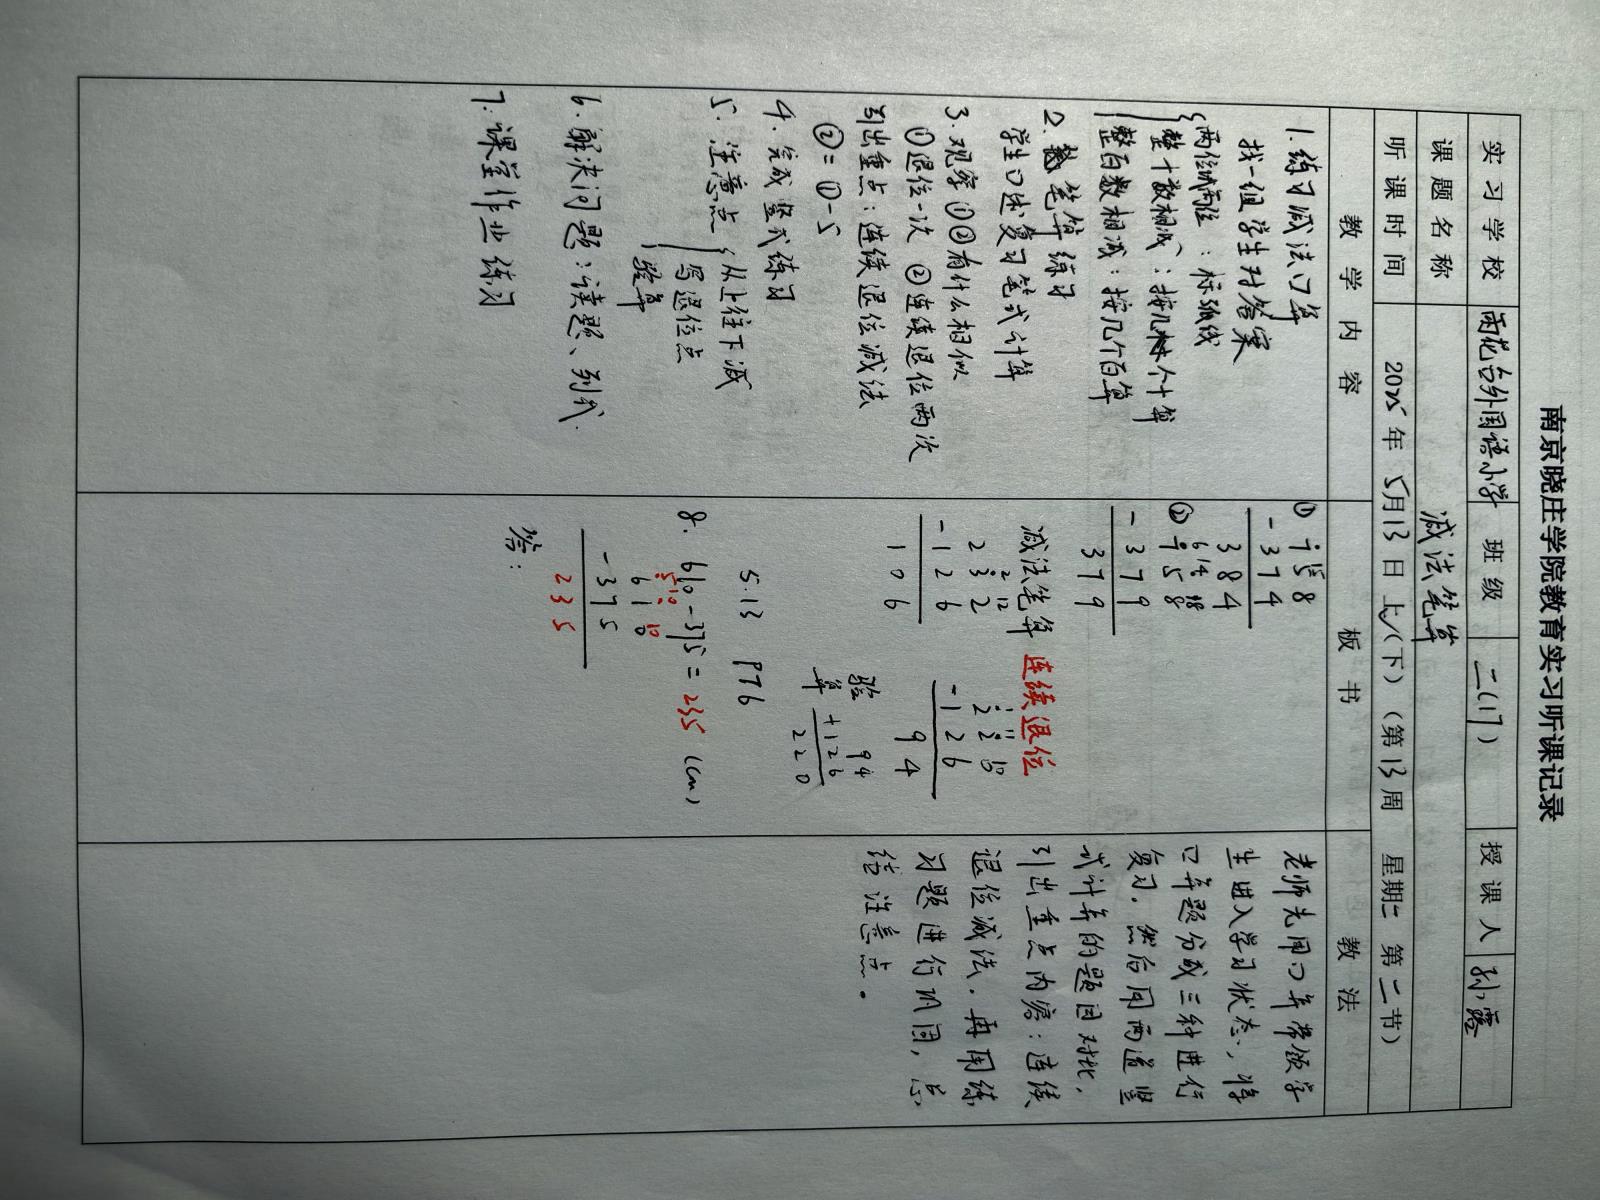 南京晓庄学院教育实习听课记录
实习学校 雨花台外国语小学 班级 二(17) 授课人 孙露
课题名称 减法笔算
听课时间 2025年 5月13日 上/(下)(第13周 星期二 第二节)
教学内容 板书 教法
1. 练习减法口算
找一组学生对答案
两位减两位：标弧线
整十数相减：按几个十算
整百数相减：按几个百算
2. 笔算练习
学生口述复习笔式计算
3. 观察①②有什么相似
①退位一次 ②连续退位两次
引出重点：连续退位减法
②=①-5
4. 完成竖式练习
5. 注意点 从上往下减
写退位点
验算
6. 解决问题：读题、列式.
7. 课堂作业练习
① 7 5 8
- 3 7 4
3 8 4
② 7 5 8
- 3 7 9
3 7 9
减法笔算 连续退位
2 3 2
- 1 2 6
1 0 6
2 2 0
- 1 2 6
9 4
验算
9 4
+ 1 2 6
2 2 0
5.13 P76
8. 610-375=235 (cm)
6 1 0
- 3 7 5
2 3 5
答：
老师先用口算带领学
生进入学习状态，将
口算题分成三种进行
复习，然后用两道竖
式计算的题目对比，
引出重点内容：连续
退位减法，再用练
习题进行巩固，总
结注意点。